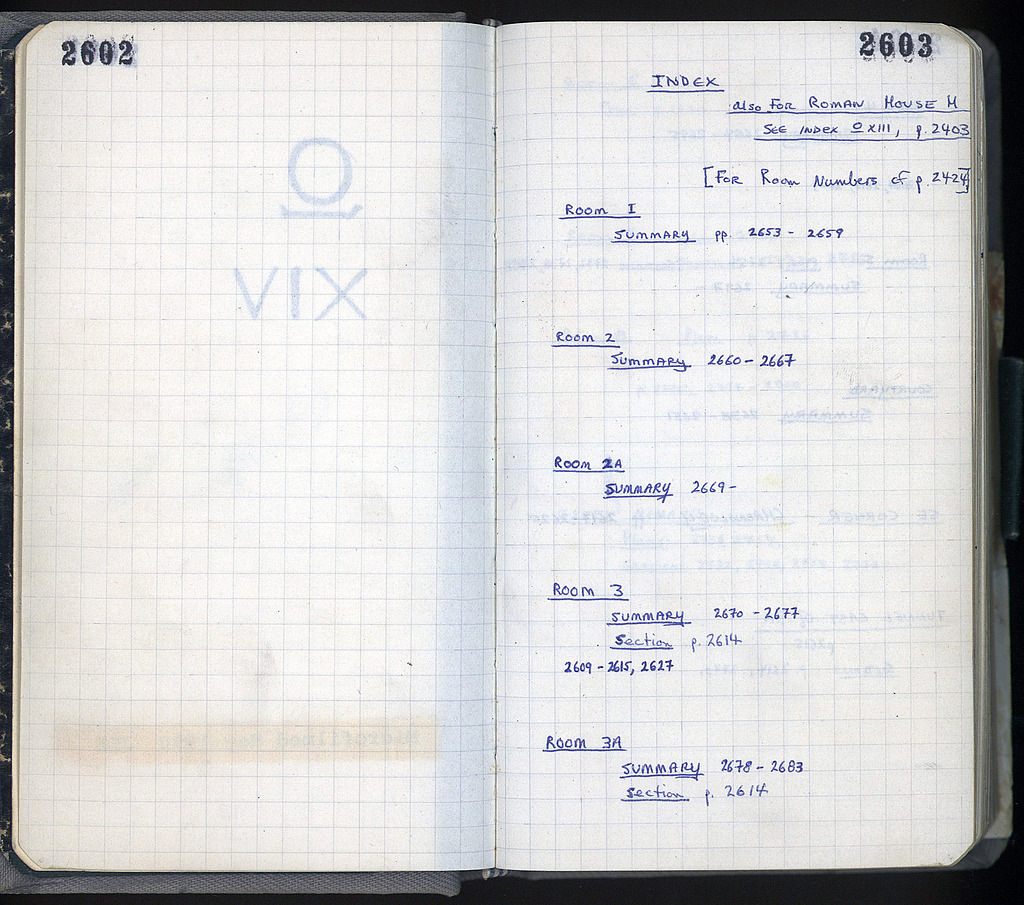 2602
O
XIV
2603
INDEX
also For ROMAN HOUSE H
SEE INDEX O XIII, p. 2403
[FOR Room Numbers cf p. 2424]
ROOM I
SUMMARY pp. 2653 - 2659
ROOM 2
SUMMARY 2660 - 2667
ROOM 2A
SUMMARY 2669 -
ROOM 3
SUMMARY 2670 - 2677
Section p. 2614
2609 - 2615, 2627
ROOM 3A
SUMMARY 2678 - 2683
Section p. 2614